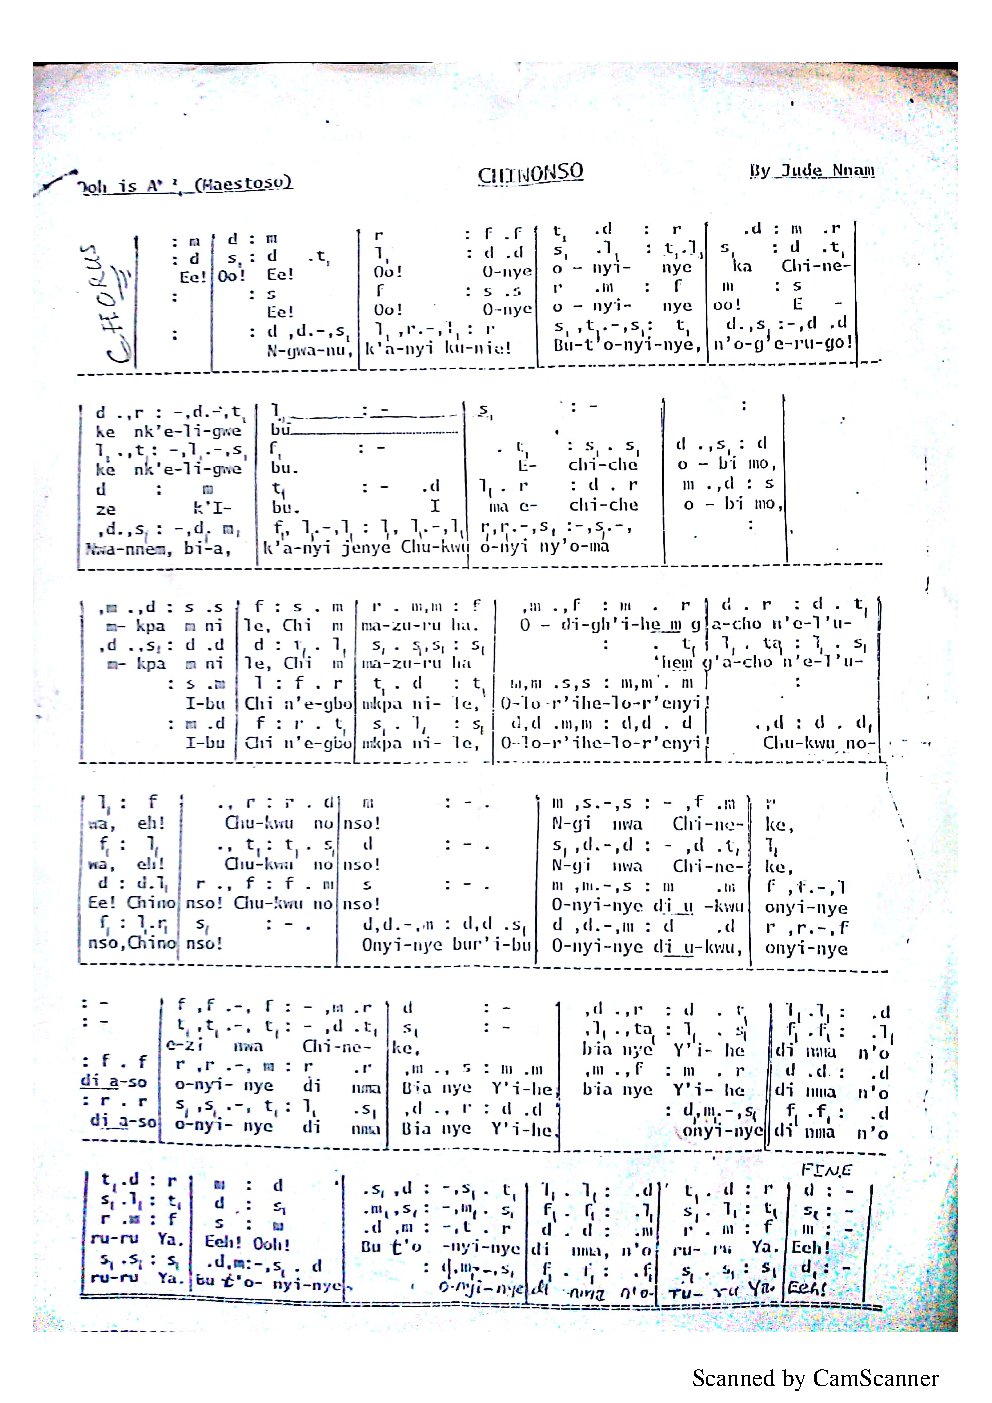 Doh is A♭ (Maestoso) CHINONSO By Jude Nnam
CHORUS
: m | d : m | r : f .f | t₁ .d : r | .d : m .r
: d | s₁ : d .t₁ | l₁ : d .d | s₁ .l₁ : t₁.l₁ | s₁ : d .t₁
Ee! | Oo! Ee! | Oo! O-nye | o - nyi- nye | ka Chi-ne-
: | : s | f : s .s | r .m : f | m : s
Ee! | Oo! O-nye | o - nyi- nye | oo! E -
: | : d ,d.-,s₁ | l₁ ,r.-,l₁ : r | s₁ ,t₁.-,s₁ : t₁ | d.,s₁ :-,d .d
N-gwa-nu, | k'a-nyi ku-nie! | Bu-t'o-nyi-nye, | n'o-g'e-ru-go!
d .,r : -,d.-,t₁ | l₁ : - | s₁ : - | :
ke nk'e-li-gwe | bu
l₁ .,t₁ : -,l₁.-,s₁ | f₁ : - | . t₁ : s₁ . s₁ | d .,s₁ : d
ke nk'e-li-gwe | bu. | E- chi-che | o - bi mo,
d : m | t₁ : - .d | l₁ . r : d . r | m .,d : s
ze k'I- | bu. I | ma e- chi-che | o - bi mo,
,d.,s₁ : -,d. m₁ | f₁ l₁.-,l₁ : l₁ l₁.-,l₁ | r,r.-,s₁ :-,s₁.-, | :
Nwa-nnem, bi-a, | k'a-nyi jenye Chu-kwu | o-nyi ny'o-ma
,m .,d : s .s | f : s . m | r . m,m : f | ,m .,f : m . r | d . r : d . t₁
m- kpa m ni | le, Chi m | ma-zu-ru ha. | O - di-gh'i-he m g'a-cho n'e-l'u-
,d .,s₁ : d .d | d : t₁ . l₁ | s₁ . s₁,s₁ : s₁ | : . t₁ | l₁ . ta : l₁ . s₁
m- kpa m ni | le, Chi m | ma-zu-ru ha | 'hem g'a-cho n'e-l'u-
: s .m | l : f . r | t₁ . d : t₁ | m,m .s,s : m,m . m | :
I-bu | Chi n'e-gbo | mkpa ni- le, | O-lo-r'ihe-lo-r'enyi!
: m .d | f : r . t₁ | s₁ . l₁ : s₁ | d,d .m,m : d,d . d | .,d : d . d₁
I-bu | Chi n'e-gbo | mkpa ni- le, | O-lo-r'ihe-lo-r'enyi! | Chu-kwu no-
l₁ : f | ., r : r . d | m : - . | m ,s.-,s : - ,f .m | r
wa, eh! | Chu-kwu no | nso! | N-gi nwa Chi-ne- | ke,
f₁ : l₁ | ., t₁ : t₁ . s₁ | d : - . | s₁ ,d.-,d : - ,d .t₁ | l₁
wa, eh! | Chu-kwu no | nso! | N-gi nwa Chi-ne- | ke,
d : d.l₁ | r ., f : f . m | s : - . | m ,m.-,s : m .m | f ,f.-,l
Ee! Chino | nso! Chu-kwu no | nso! | O-nyi-nye di u -kwu | onyi-nye
f₁ : l₁.r₁ | s₁ : - . | d,d.-,m : d,d .s₁ | d ,d.-,m : d .d | r ,r.-,f
nso,Chino | nso! | Onyi-nye bur'i-bu | O-nyi-nye di u-kwu, | onyi-nye
: - | f ,f .-, f : - ,m .r | d : - | ,d .,r : d . t₁ | l₁ .l₁ : .d
: - | t₁ ,t₁ .-, t₁ : - ,d .t₁ | s₁ : - | ,l₁ .,ta : l₁ . s₁ | f₁ .f₁ : .l₁
e-zi nwa Chi-ne- | ke, | bia nye Y'i- he | di nma n'o
: f . f | r ,r .-, m : r .r | ,m ., s : m .m | ,m .,f : m . r | d .d : .d
di a-so | o-nyi- nye di nma | Bia nye Y'i-he, | bia nye Y'i- he | di nma n'o
: r . r | s₁ ,s₁ .-, t₁ : l₁ .s₁ | ,d ., r : d .d | : d,m.-,s₁ | f₁ .f₁ : .d
di a-so | o-nyi- nye di nma | Bia nye Y'i-he, | onyi-nye | di nma n'o
FINE
t₁ .d : r | m : d | .s₁ ,d : -,s₁ . t₁ | l₁ . l₁ : .d | t₁ . d : r | d : -
s₁ .l₁ : t₁ | d : s₁ | .m₁,s₁ : -,m₁ . s₁ | f₁ . f₁ : .l₁ | s₁ . l₁ : t₁ | s₁ : -
r .m : f | s : m | .d ,m : -,t . r | d . d : .m | r . m : f | m : -
ru-ru Ya. | Eeh! Ooh! | Bu t'o -nyi-nye | di nma, n'o | ru- ru Ya. | Eeh!
s₁ .s₁ : s₁ | .d,m:-,s₁ . d | : d,m.-,s₁ | f₁ . f₁ : .f₁ | s₁ . s₁ : s₁ | d₁ : -
ru-ru Ya. | Bu t'o- nyi-nye | O-nyi-nye | di nma n'o- | ru- ru Ya. | Eeh!
Scanned by CamScanner